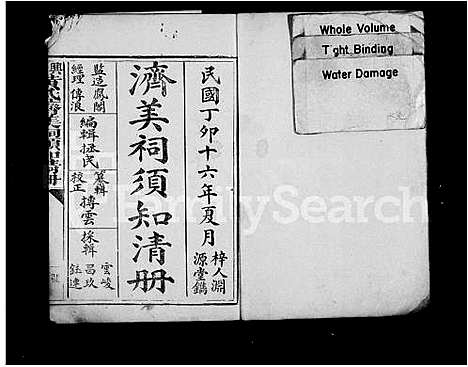 Whole Volume
Tight Binding
Water Damage
民國丁卯十六年夏月
梓人淵
源堂鐫
濟美祠須知清册
監造鳳閣
經理傳浪
編輯拯民
纂輯
校正
搏雲
採輯
雲峻
昌玖
鈺連
FamilySearch